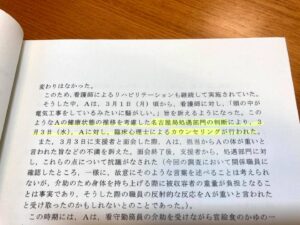 変わりはなかった。
このため、看護師によるリハビリテーションも継続して実施されていた。
そうした中、Aは、3月1日(月)頃から、看護師に対し、「頭の中が
電気工事をしているみたいに騒がしい。」旨を訴えるようになった。この
ようなAの健康状態の推移を考慮した名古屋局処遇部門の判断により、3
月3日(水)、Aに対し、臨床心理士によるカウンセリングが行われた。
また、3月3日に支援者と面会した際、Aは、担当からAの体が重いと
言われた旨などの不満を訴え、面会終了後、支援者から、処遇部門に対
し、これらの点について抗議がなされた(今回の調査において関係職員に
確認したところ、一様に、故意にそのような言葉を述べることは考えられ
ないが、介助のため身体を持ち上げる際に被収容者の重量が負担となること
は事実であり、そうした際の職員の反射的な反応をAが重いと言われた
と受け取ったのかもしれないとのことであった。)。
この時期には、Aは、看守勤務員の介助を受けながら官給食のかゆの一